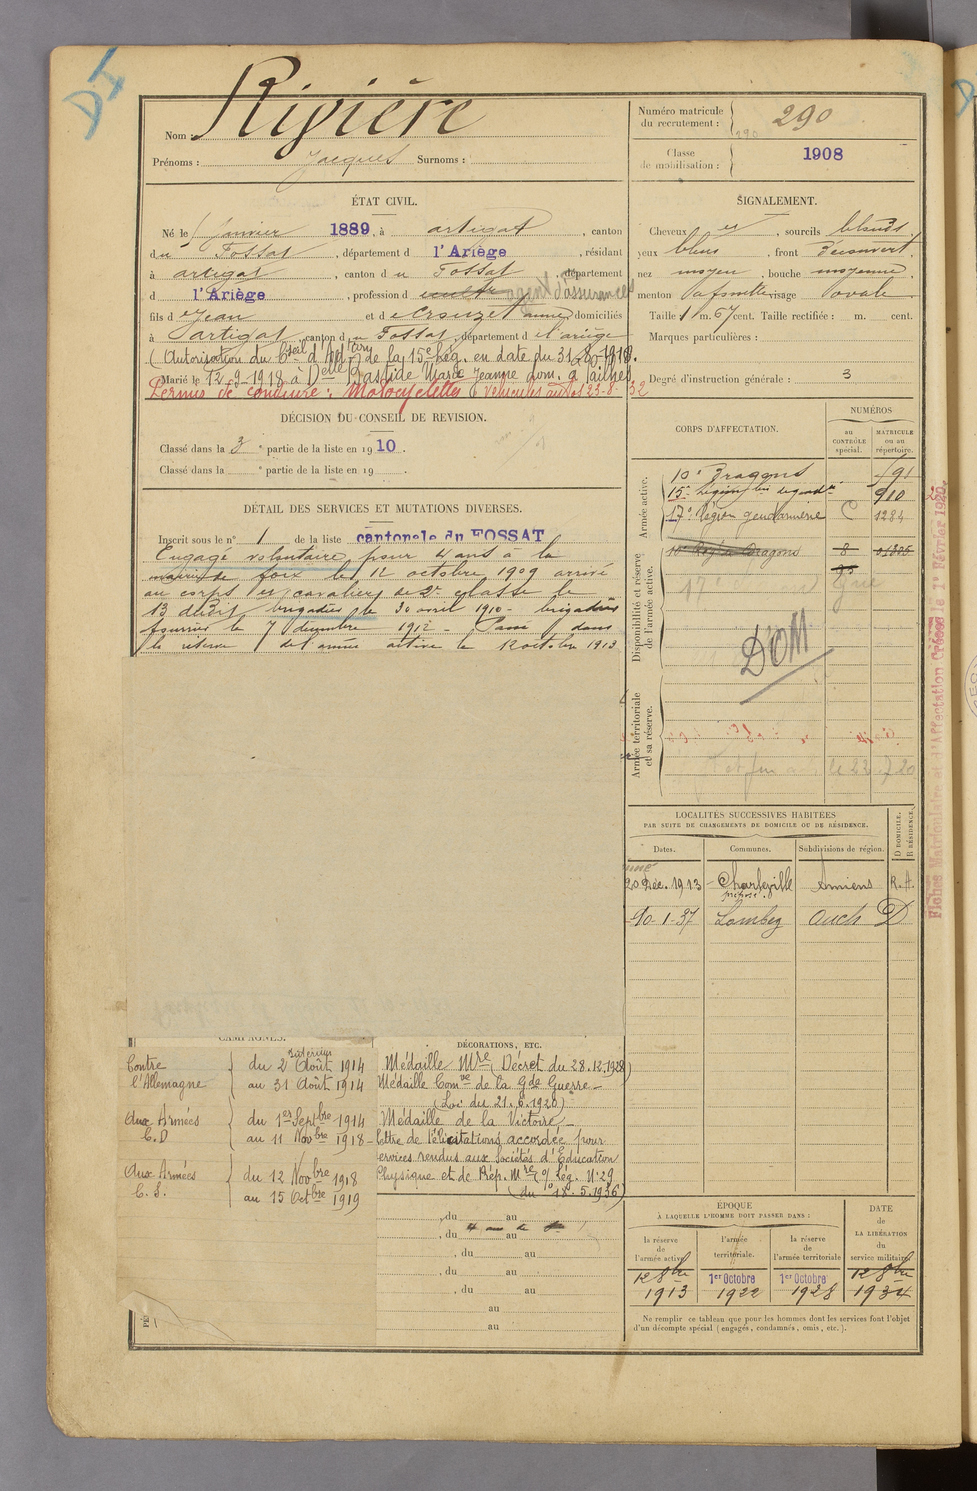 DI
Nom : Rivière
Prénoms : Jacques Surnoms :
Numéro matricule du recrutement : 290
290
Classe de mobilisation : 1908
ÉTAT CIVIL.
Né le 1 Janvier 1889, à Artigat, canton
du Fossat, département d l'Ariège, résidant
à Artigat, canton du Fossat, département
d l'Ariège, profession d agent d'assurances
fils de Jean et de Crouzet Anne, domiciliés
à Artigat, canton du Fossat, département de l'Ariège
(Autorisation du Cseil d'Adon de la 15e Lég. en date du 31-8-1918.
Marié le 12-9-1918 à Delle Bastide Marie Jeanne dom. à Pailhès
Permis de conduire : Motocyclettes & véhicules autos 23-8-32
SIGNALEMENT.
Cheveux et, sourcils blonds,
yeux bleus, front découvert,
nez moyen, bouche moyenne
menton à fossette visage ovale.
Taille 1 m. 67 cent. Taille rectifiée : m. cent.
Marques particulières :
Degré d'instruction générale : 3
DÉCISION DU CONSEIL DE REVISION.
Classé dans la 3 e partie de la liste en 1910.
Classé dans la e partie de la liste en 19 .
DÉTAIL DES SERVICES ET MUTATIONS DIVERSES.
Inscrit sous le n° 1 de la liste cantonale du FOSSAT
Engagé volontaire pour 4 ans à la
mairie de Foix le 12 octobre 1909 arrivé
au corps et cavalier de 2e classe le
13 dudit, brigadier le 30 avril 1910 - brigadier
fourrier le 7 décembre 1912 - Passé dans
la réserve de l'armée active le 12 octobre 1913
CORPS D'AFFECTATION.
NUMÉROS
au CONTRÔLE spécial.
MATRICULE ou au répertoire.
Armée active.
10e Dragons 191
15e Légion de gend. 910
17e Légion gendarmerie C 1284
Disponibilité et réserve de l'armée active.
10e Régt de Dragons 8 01805
DOM
Armée territoriale et sa réserve.
Fiches Matriculaire et d'Affectation Créées le 1er Février 1920.
LOCALITÉS SUCCESSIVES HABITÉES
PAR SUITE DE CHANGEMENTS DE DOMICILE OU DE RÉSIDENCE.
Dates. Communes. Subdivisions de région. D DOMICILE. R RÉSIDENCE.
20 Déc. 1913 Charleville Amiens R.
10-1-37 Lombez Auch D
CAMPAGNES.
Contre l'Allemagne
du 2 Août 1914
intérieur
au 31 Août 1914
Aux Armées C.D
du 1er Septbre 1914
au 11 Novbre 1918
Aux Armées C.S.
du 12 Novbre 1918
au 15 Octbre 1919
DÉCORATIONS, ETC.
Médaille Mre (Décret du 28.12.1928)
Médaille Comve de la Gde Guerre -
(Loi du 21.6.1920)
Médaille de la Victoire -
Lettre de félicitations accordée pour
services rendus aux Sociétés d'Education
Physique et de Prép. Mre (O/ Lég. N° 29
du 18.5.1936)
, du au
, du au
, du au
, du au
, du au
au
au
ÉPOQUE
À LAQUELLE L'HOMME DOIT PASSER DANS :
la réserve de l'armée active
l'armée territoriale.
la réserve de l'armée territoriale
DATE de LA LIBÉRATION du service militaire
12 8bre 1913
1er Octobre 1922
1er Octobre 1928
12 8bre 1934
Ne remplir ce tableau que pour les hommes dont les services font l'objet
d'un décompte spécial (engagés, condamnés, omis, etc.).